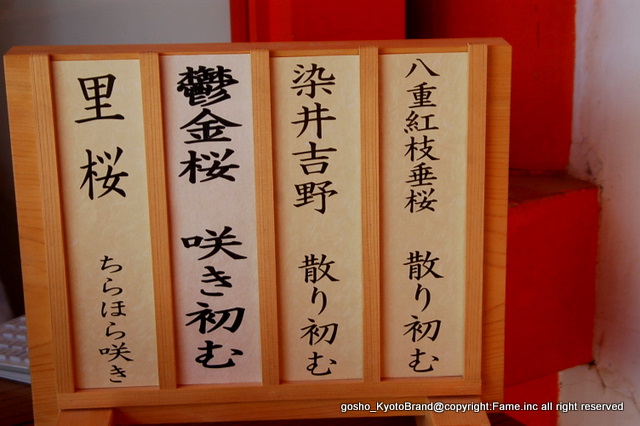 八重紅枝垂桜 散り初む
染井吉野 散り初む
鬱金桜 咲き初む
里桜 ちらほら咲き
gosho_KyotoBrand@copyright:Fame.inc all right reserved